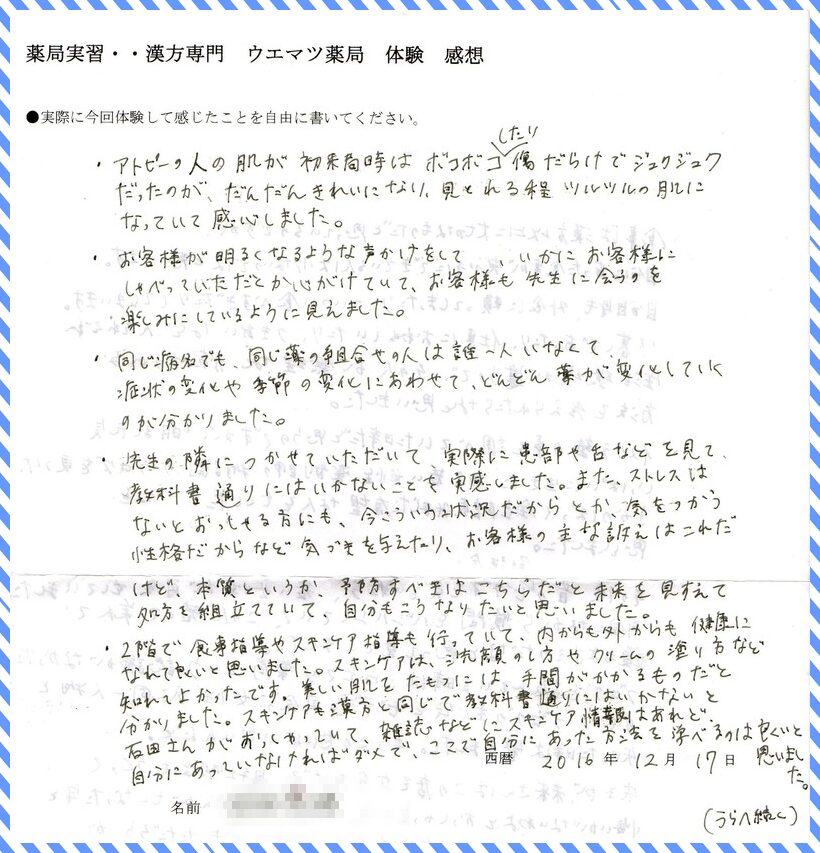 薬局実習・・漢方専門　ウエマツ薬局　体験　感想
●実際に今回体験して感じたことを自由に書いてください。
・アトピーの人の肌が初来局時はボコボコしたり傷だらけでジュクジュク
だったのが、だんだんきれいになり、見とれる程ツルツルの肌に
なっていて感心しました。
・お客様が明るくなるような声かけをして、、いかにお客様に
しゃべっていただとか心がけていて、お客様も先生に会うのを
楽しみにしているように見えました。
・同じ病名でも、同じ薬の組合せの人は誰一人いなくて、
症状の変化や季節の変化にあわせて、どんどん薬が変化していく
のが分かりました。
・先生の隣につかせていただいて実際に患部や舌などを見て、
教科書通りにはいかないことも実感しました。また、ストレスは
ないとおっしゃる方にも、今こういう状況だからとか、気をつかう
性格だからなど気づきを与えたり、お客様の主な訴えはこれだ
けど本質というか、予防すべきはこちらだと未来を見すえて
処方を組立てていて、自分もこうなりたいと思いました。
・2階で食事指導やスキンケア指導も行っていて、内からも外からも健康に
なれて良いと思いました。スキンケアは、洗顔のし方やクリームの塗り方など
知れてよかったです。美しい肌をたもつには手間がかかるものだと
分かりました。スキンケアも漢方と同じで教科書通りにはいかないと
石田さんがおっしゃっていて、雑誌などにスキンケア情報はあれど、
自分にあっていなければダメで、ここで自分にあった方法を学べるのは良いと
思いました。
西暦　2016年12月17日
名前
（うらへ続く）